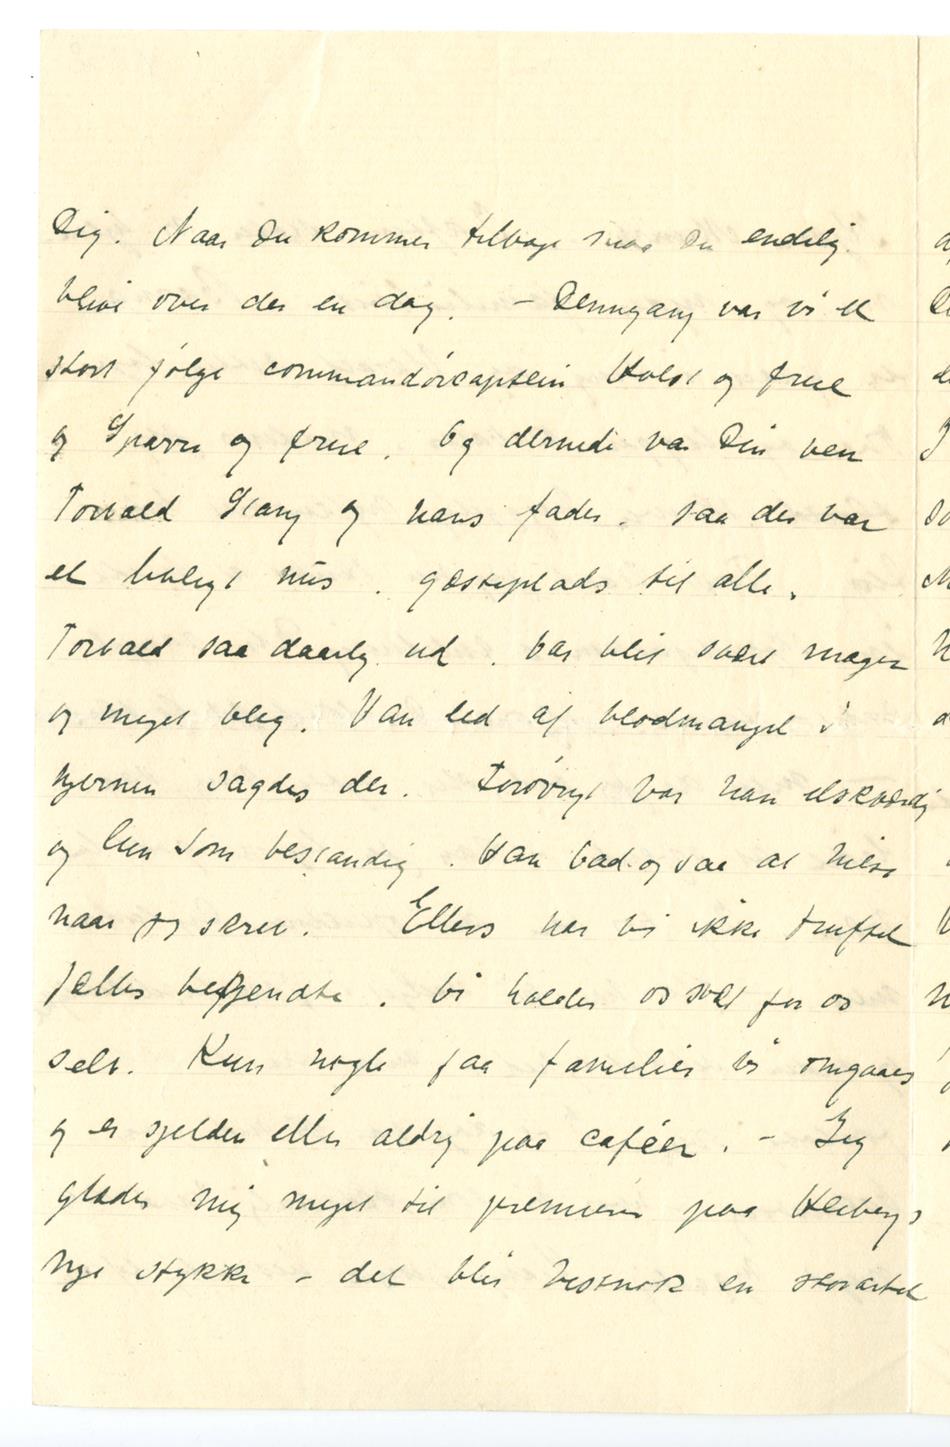 Dig. Naar Du kommer tilbage maa Du endelig
blive over der en dag. – Denngang var vi et
stort følge commandørcaptein Holst og frue
og Sparre og frue. Og dernede var Din ven
Torvald Stang og hans fader. saa der var
et huligt hus. gæsteplads til alle.
Torvald saa daarlig ud. var blit svært mager
og meget bleg. Han led af blodmangel i
hjernen sagdes der. Forøvrigt var han elskværdig
og lun som bestandig. Han bad ogsaa at hilse
naar jeg skrev. Ellers har vi ikke truffet
fælles bekjendte. Vi holder os svært for os
selv. Kun nogle faa familier vi omgaaes
og er sjelden eller aldrig paa caféer. – Jeg
glæder mig meget til premieren paa Heibergs
nye stykke – det blir vistnok en storartet